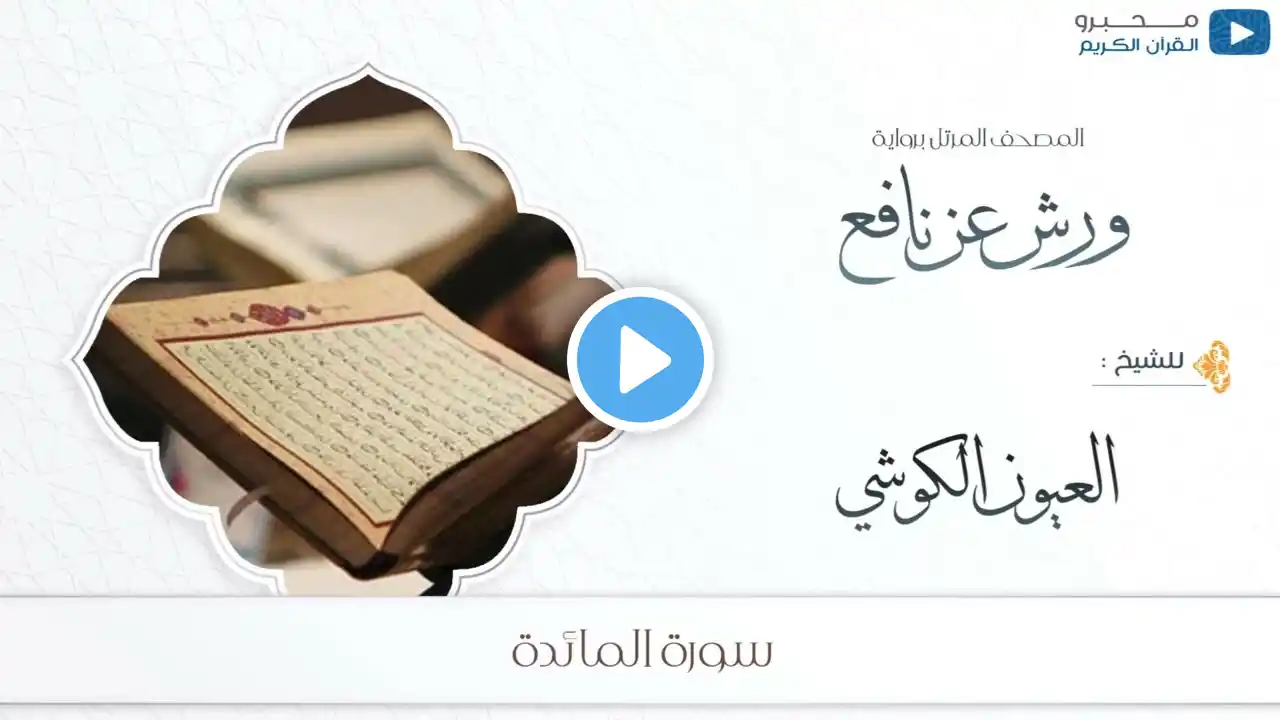 محبرو
القرآن الكريم
المصحف المرتل برواية
ورش عن نافع
للشيخ :
العيون الكوشي
سورة المائدة